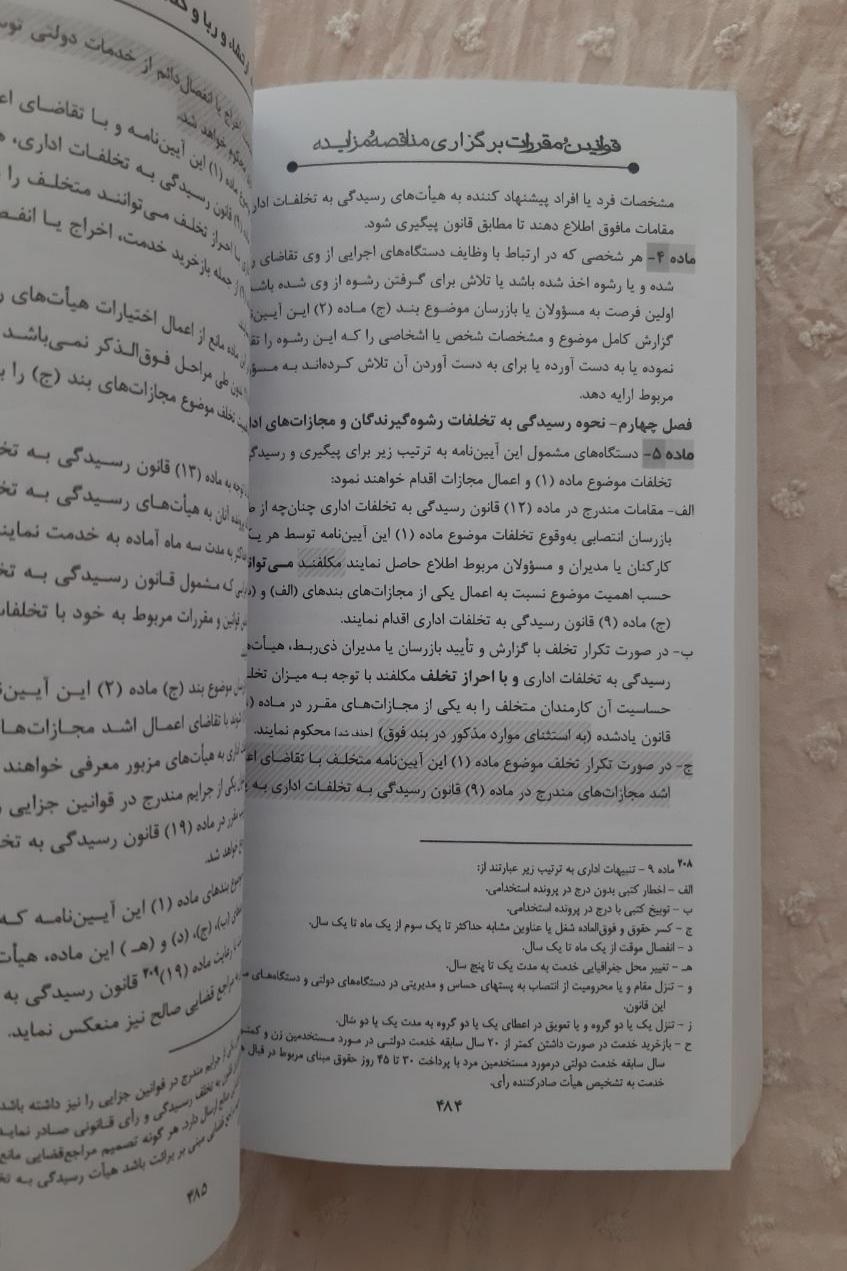 قوانین و مقررات برگزاری مناقصه و مزایده
مشخصات فرد یا افراد پیشنهاد کننده به هیأت‌های رسیدگی به تخلفات
مقامات مافوق اطلاع دهند تا مطابق قانون پیگیری شود.
ماده ۴- هر شخصی که در ارتباط با وظایف دستگاه‌های اجرایی از وی تقاضای
شده و یا رشوه اخذ شده باشد یا تلاش برای گرفتن رشوه از وی شده
اولین فرصت به مسؤولان یا بازرسان موضوع بند (ج) ماده (۲) این
گزارش کامل موضوع و مشخصات شخص یا اشخاصی را که این رشوه را
نموده یا به دست آورده یا برای به دست آوردن آن تلاش کرده‌اند به
مربوط ارایه دهد.
فصل چهارم- نحوه رسیدگی به تخلفات رشوه‌گیرندگان و مجازات‌های
ماده ۵- دستگاه‌های مشمول این آیین‌نامه به ترتیب زیر برای پیگیری و
تخلفات موضوع ماده (۱) و اعمال مجازات اقدام خواهند نمود:
الف- مقامات مندرج در ماده (۱۲) قانون رسیدگی به تخلفات اداری چنان‌چه از
بازرسان انتصابی به‌وقوع تخلفات موضوع ماده (۱) این آیین‌نامه توسط هر
کارکنان یا مدیران و مسؤولان مربوط اطلاع حاصل نمایند مکلفند
حسب اهمیت موضوع نسبت به اعمال یکی از مجازات‌های بندهای (الف) و
(ج) ماده (۹) قانون رسیدگی به تخلفات اداری اقدام نمایند.
ب- در صورت تکرار تخلف با گزارش و تأیید بازرسان یا مدیران ذی‌ربط،
رسیدگی به تخلفات اداری و با احراز تخلف مکلفند با توجه به میزان
حساسیت آن کارمندان متخلف را به یکی از مجازات‌های مقرر در ماده
قانون یادشده (به استثنای موارد مذکور در بند فوق) [حذف شد] محکوم نمایند.
ج- در صورت تکرار تخلف موضوع ماده (۱) این آیین‌نامه متخلف با تقاضای
اشد مجازات‌های مندرج در ماده (۹) قانون رسیدگی به تخلفات اداری به
۲۰۸ ماده ۹ - تنبیهات اداری به ترتیب زیر عبارتند از:
الف - اخطار کتبی بدون درج در پرونده استخدامی.
ب - توبیخ کتبی با درج در پرونده استخدامی.
ج - کسر حقوق و فوق‌العاده شغل یا عناوین مشابه حداکثر تا یک سوم از یک ماه تا یک سال.
د - انفصال موقت از یک ماه تا یک سال.
هـ - تغییر محل جغرافیایی خدمت به مدت یک تا پنج سال.
و - تنزل مقام و یا محرومیت از انتصاب به پستهای حساس و مدیریتی در دستگاه‌های دولتی و دستگاه‌های
این قانون.
ز - تنزل یک یا دو گروه و یا تعویق در اعطای یک یا دو گروه به مدت یک یا دو سال.
ح - بازخرید خدمت در صورت داشتن کمتر از ۲۰ سال سابقه خدمت دولتی در مورد مستخدمین زن و
سال سابقه خدمت دولتی درمورد مستخدمین مرد با پرداخت ۳۰ تا ۴۵ روز حقوق مبنای مربوط در قبال
خدمت به تشخیص هیأت صادرکننده رأی.
۴۸۴
اخراج یا انفصال دائم از خدمات دولتی
ماده (۱) این آیین‌نامه و با تقاضای
قانون رسیدگی به تخلفات اداری،
احراز تخلف می‌توانند متخلف را
از جمله بازخرید خدمت، اخراج یا
ماده مانع از اعمال اختیارات هیأت‌های
بدون طی مراحل فوق‌الذکر نمی‌باشد
تخلف موضوع مجازات‌های بند (ج) را
توجه به ماده (۱۳) قانون رسیدگی به
آنان به هیأت‌های رسیدگی به
به مدت سه ماه آماده به خدمت
که مشمول قانون رسیدگی به
قوانین و مقررات مربوط به خود با
موضوع بند (ج) ماده (۲) این
با تقاضای اعمال اشد
به هیأت‌های مزبور معرفی خواهند
یکی از جرایم مندرج در قوانین جزایی
مقرر در ماده (۱۹) قانون رسیدگی به
خواهد شد.
بندهای ماده (۱) این آیین‌نامه که
(ب)، (ج)، (د) و (هـ) این ماده،
رعایت ماده (۱۹)۲۰۹ قانون رسیدگی به
مراجع قضایی صالح نیز منعکس نماید.
از جرایم مندرج در قوانین جزایی را نیز داشته باشد
به تخلف رسیدگی و رأی قانونی صادر
ارسال دارد. هر گونه تصمیم مراجع‌قضایی مانع
مبنی بر برائت باشد هیأت رسیدگی به
۴۸۵